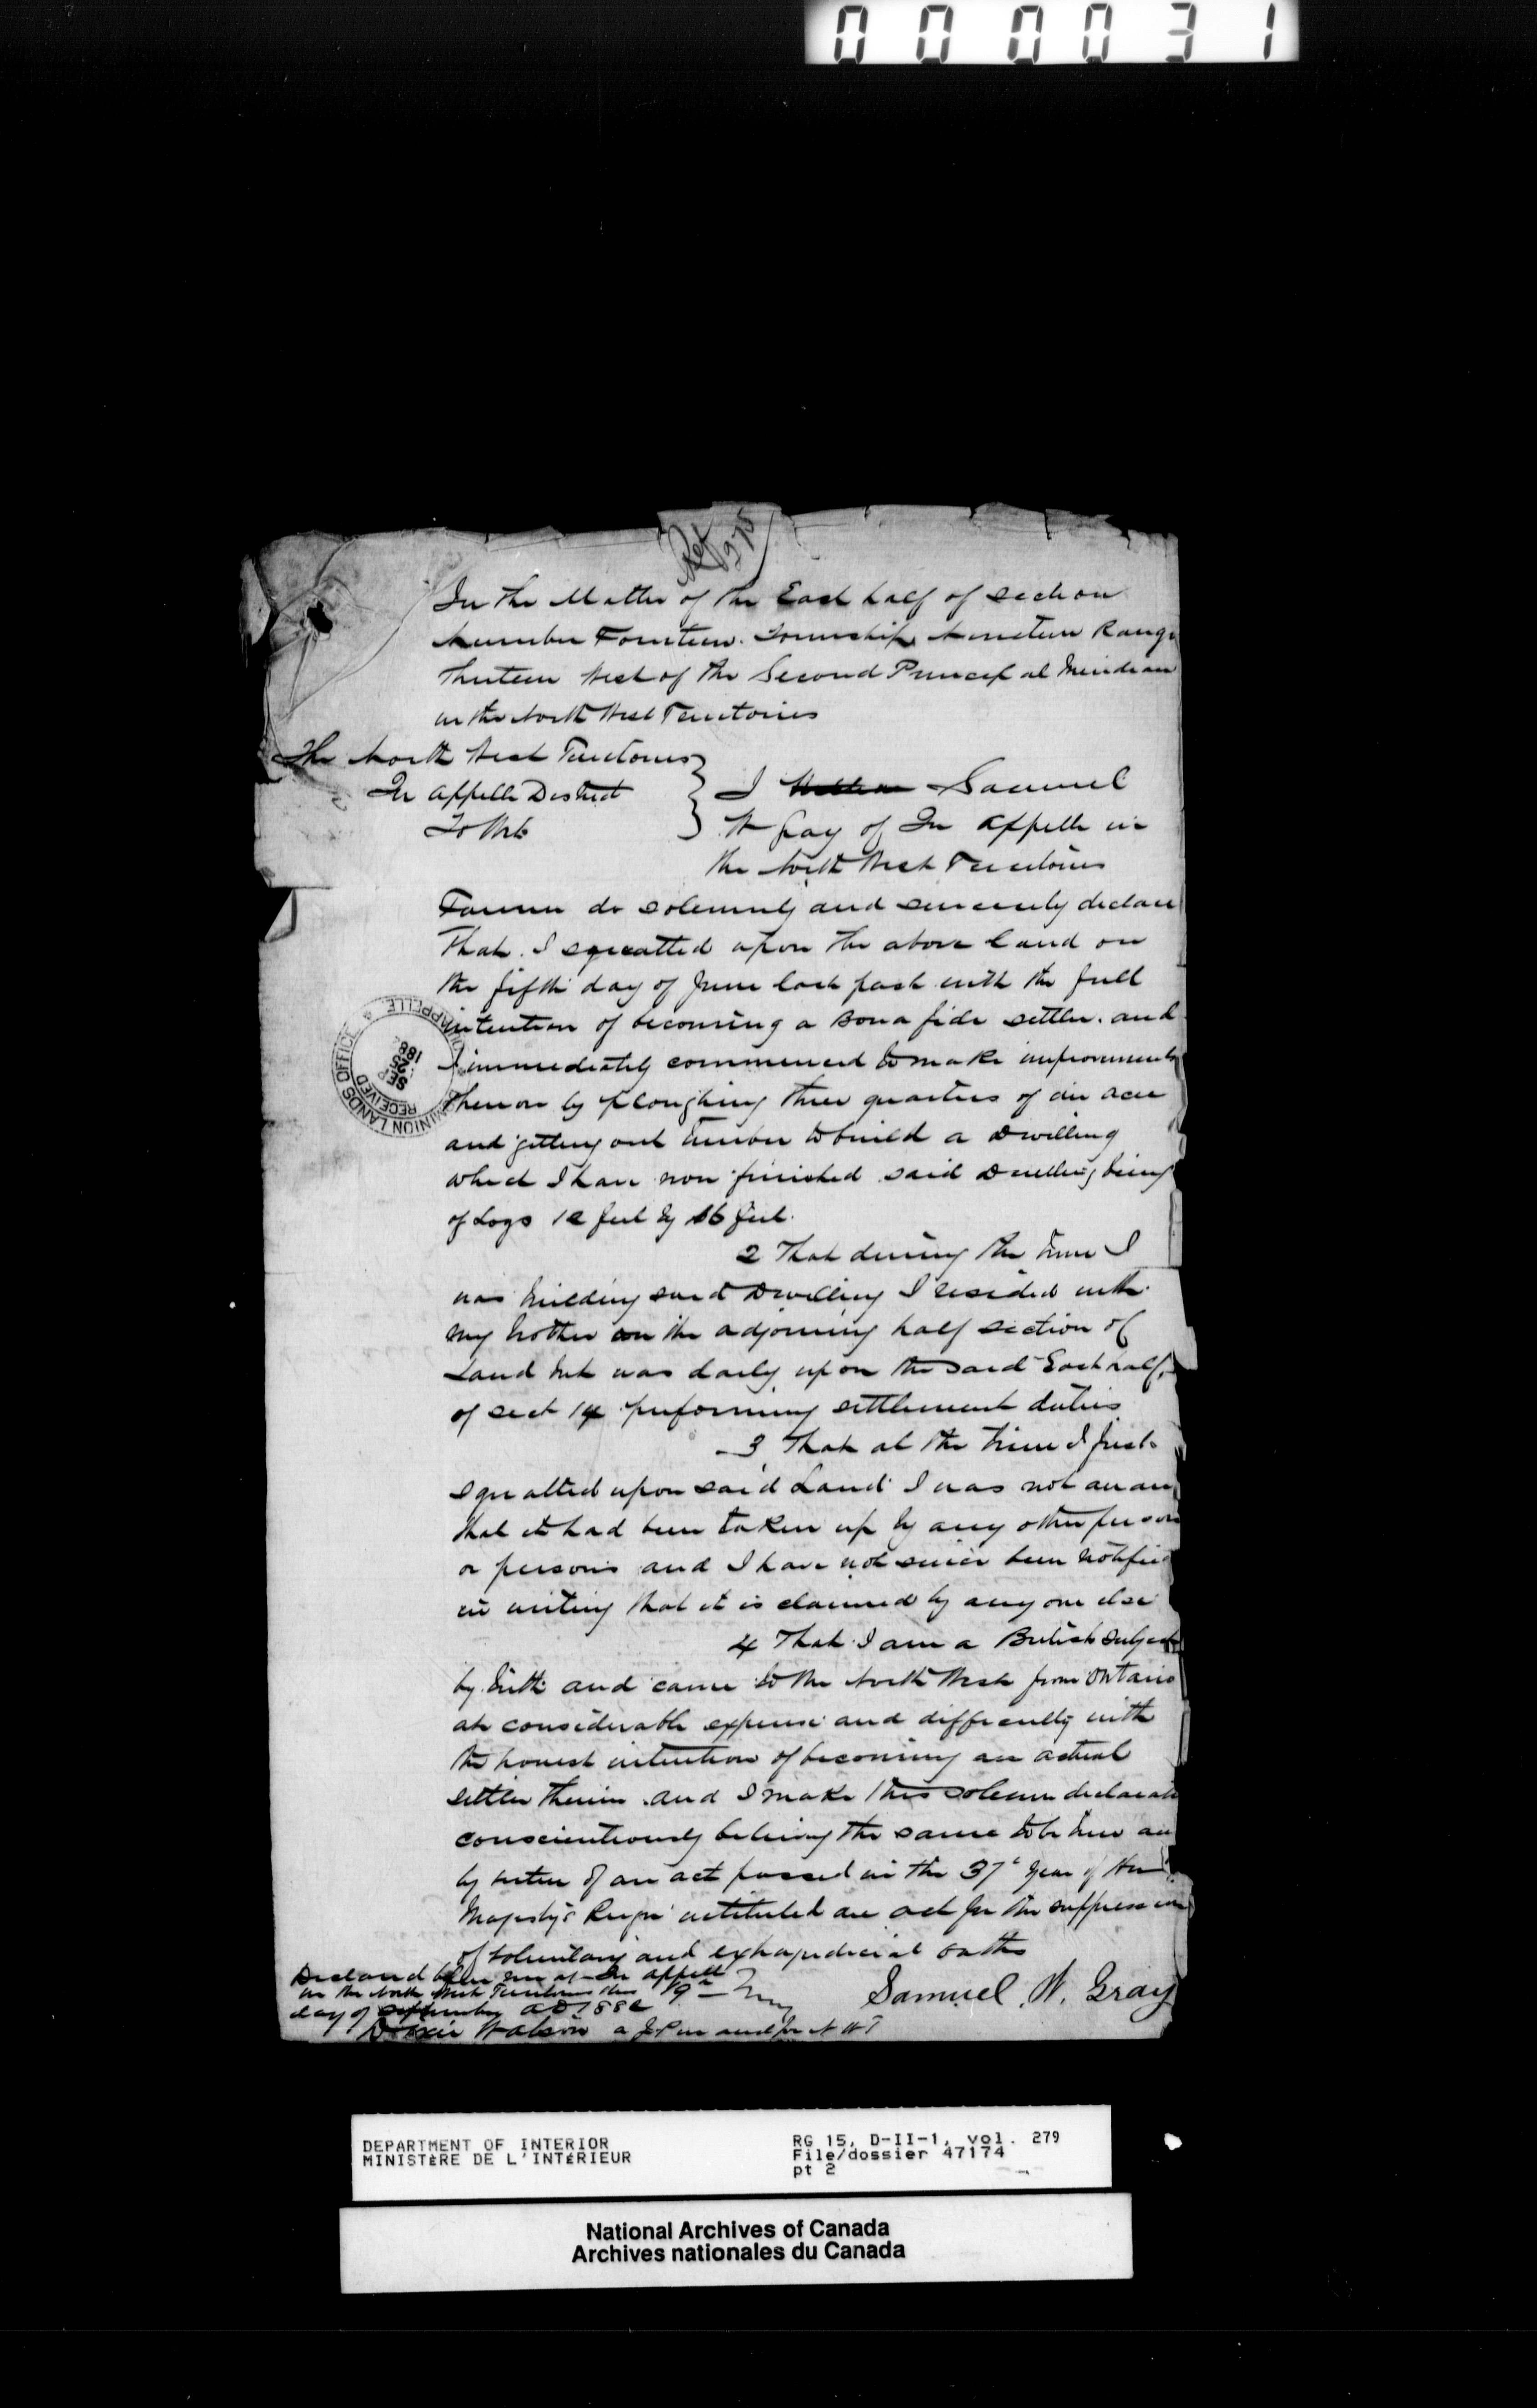 000031
Ref
In the Matter of the East half of section
Number Fourteen. Township Nineteen Range
Thirteen West of the Second Principal Meridian
in the North West Territories
The North West Territories
Qu Appelle District
To Wit
I William Samuel
W Gray of Qu Appelle in
the North West Territories
Farmer do solemnly and sincerely declare
That. I squatted upon the above land on
the fifth day of June last past with the full
intention of becoming a Bona fide settler. and
I immediately commenced to make improvements
thereon by ploughing three quarters of an acre
and getting out timber to build a Dwelling
which I have now finished said Dwelling being
of Logs 12 feet by 16 feet.
2 That during the time I
was building said Dwelling I resided with
my brother on the adjoining half section of
Land but was daily upon the said East half,
of sect 14 performing settlement duties
3 That at the time I first
squatted upon said Land I was not aware
that it had been taken up by any other person
or persons and I have not since been notified
in writing that it is claimed by any one else
4 That I am a British Subject
by birth and came to the North West from Ontario
at considerable expense and difficulty with
the honest intention of becoming an actual
settler therein and I make this solemn declarat
conscientiously believing the same to be true an
by virtue of an act passed in the 37t year of Her
Majesty's Reign intituled an act for the suppression
of voluntary and extrajudicial oaths
Declared before me at Qu Appelle
in the North West Territories this 19th
day of September AD 1882
Watson a J.P in and for N W T
Samuel. W. Gray
DOMINION LANDS OFFICE
RECEIVED
SEP
25
188
QU'APPELLE
DEPARTMENT OF INTERIOR
MINISTÈRE DE L'INTÉRIEUR
RG 15, D-II-1, vol. 279
File/dossier 47174
pt 2
National Archives of Canada
Archives nationales du Canada